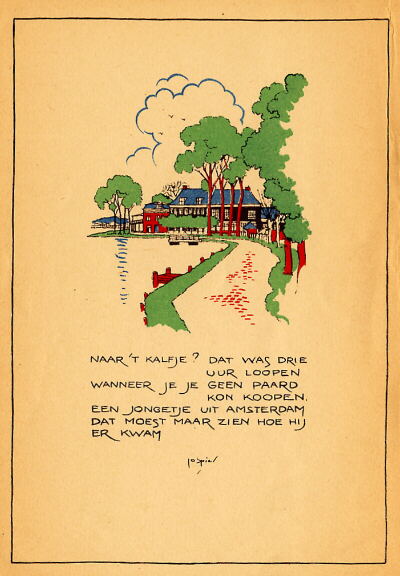 NAAR 'T KALFJE? DAT WAS DRIE
UUR LOOPEN
WANNEER JE JE GEEN PAARD
KON KOOPEN.
EEN JONGETJE UIT AMSTERDAM
DAT MOEST MAAR ZIEN HOE HIJ
ER KWAM
Jo Spier